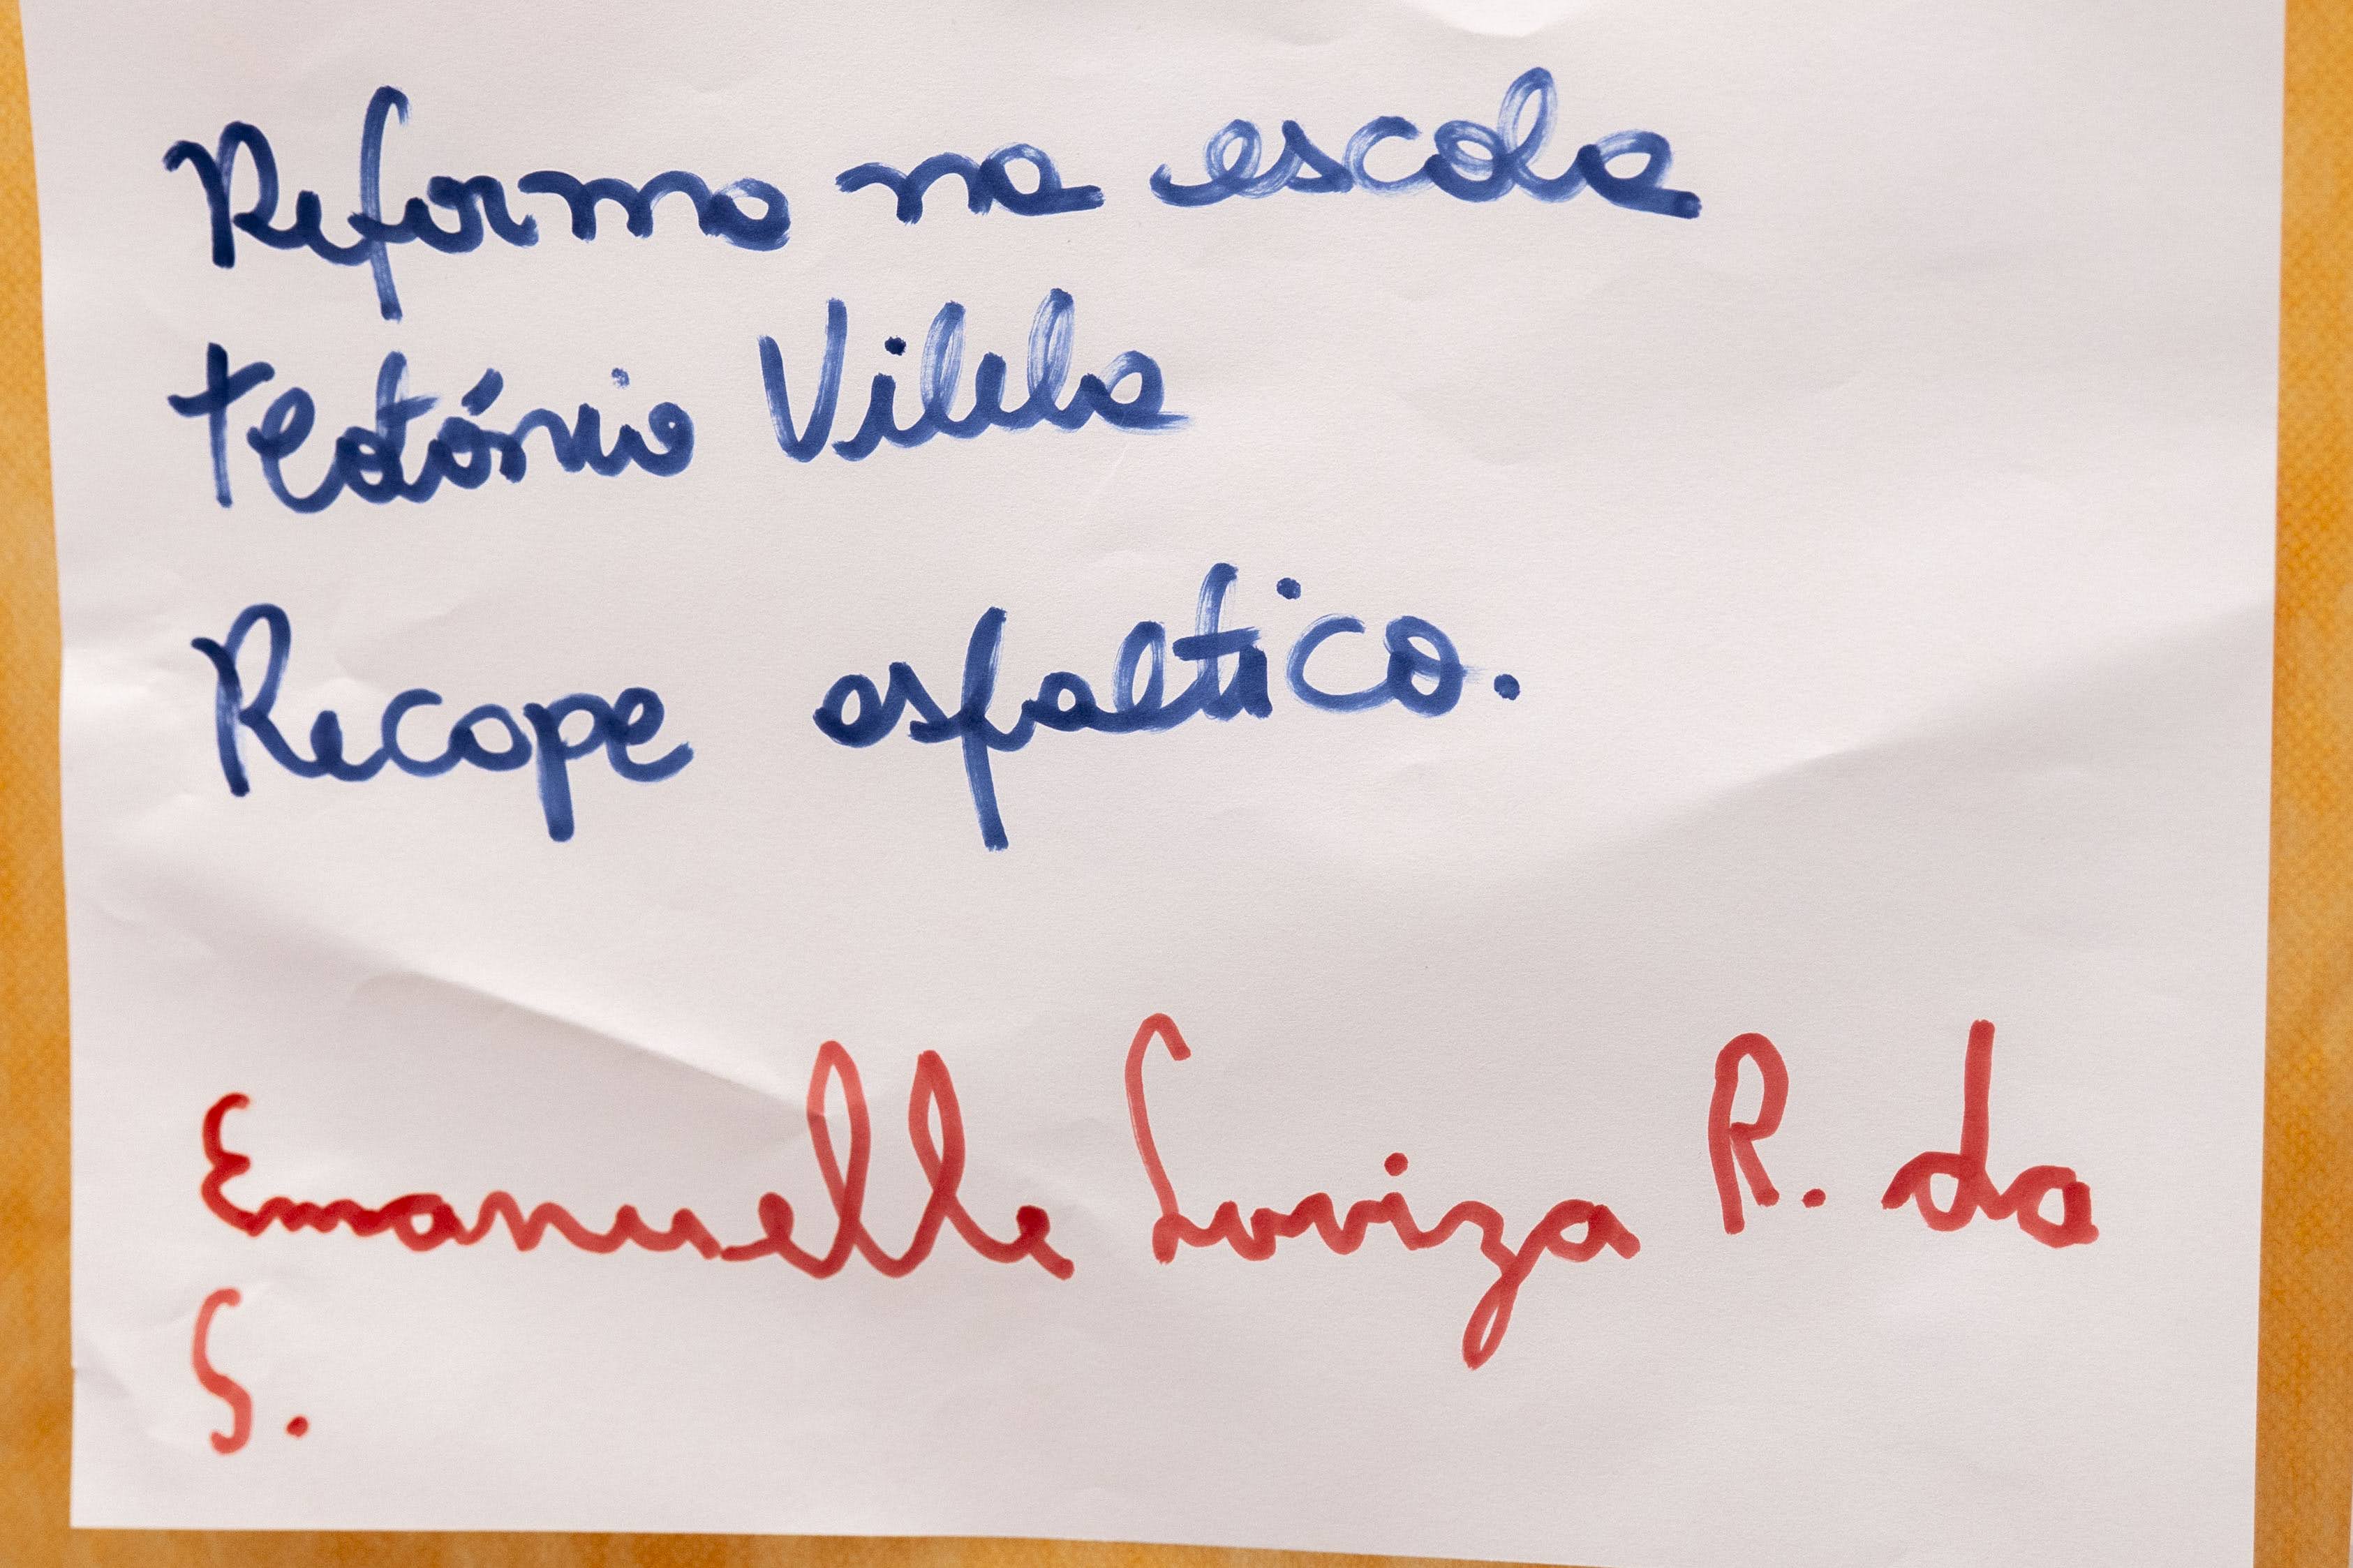 Reforma na escola
teotónio Vilela
Recape asfaltico.
Emanuelle Luviza R. da
S.